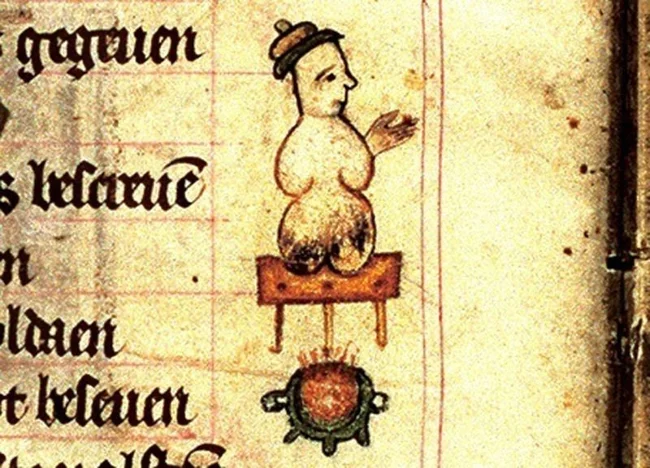 s gegeuen
s bescreuē
en
oldaen
t beseuen